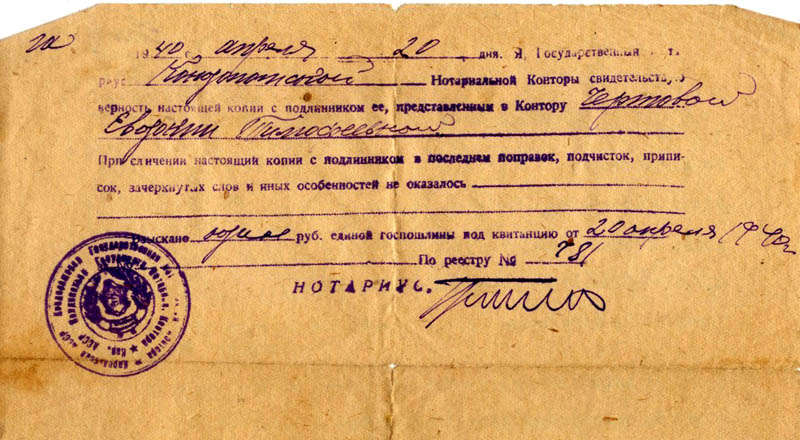 1940 г. апреля 20 дня. Я, Государственный
Кондопожской Нотариальной Конторы свидетельствую
верность настоящей копии с подлинником ее, представленным в Контору Чертовой
Евдокии Тимофеевной
При сличении настоящий копии с подлинником в последнем поправок, подчисток, припи-
сок, зачеркнутых слов и иных особенностей не оказалось
Взыскано один руб. единой госпошлины под квитанцию от 20 апреля 1940 г.
По реестру № 781
НОТАРИУС.